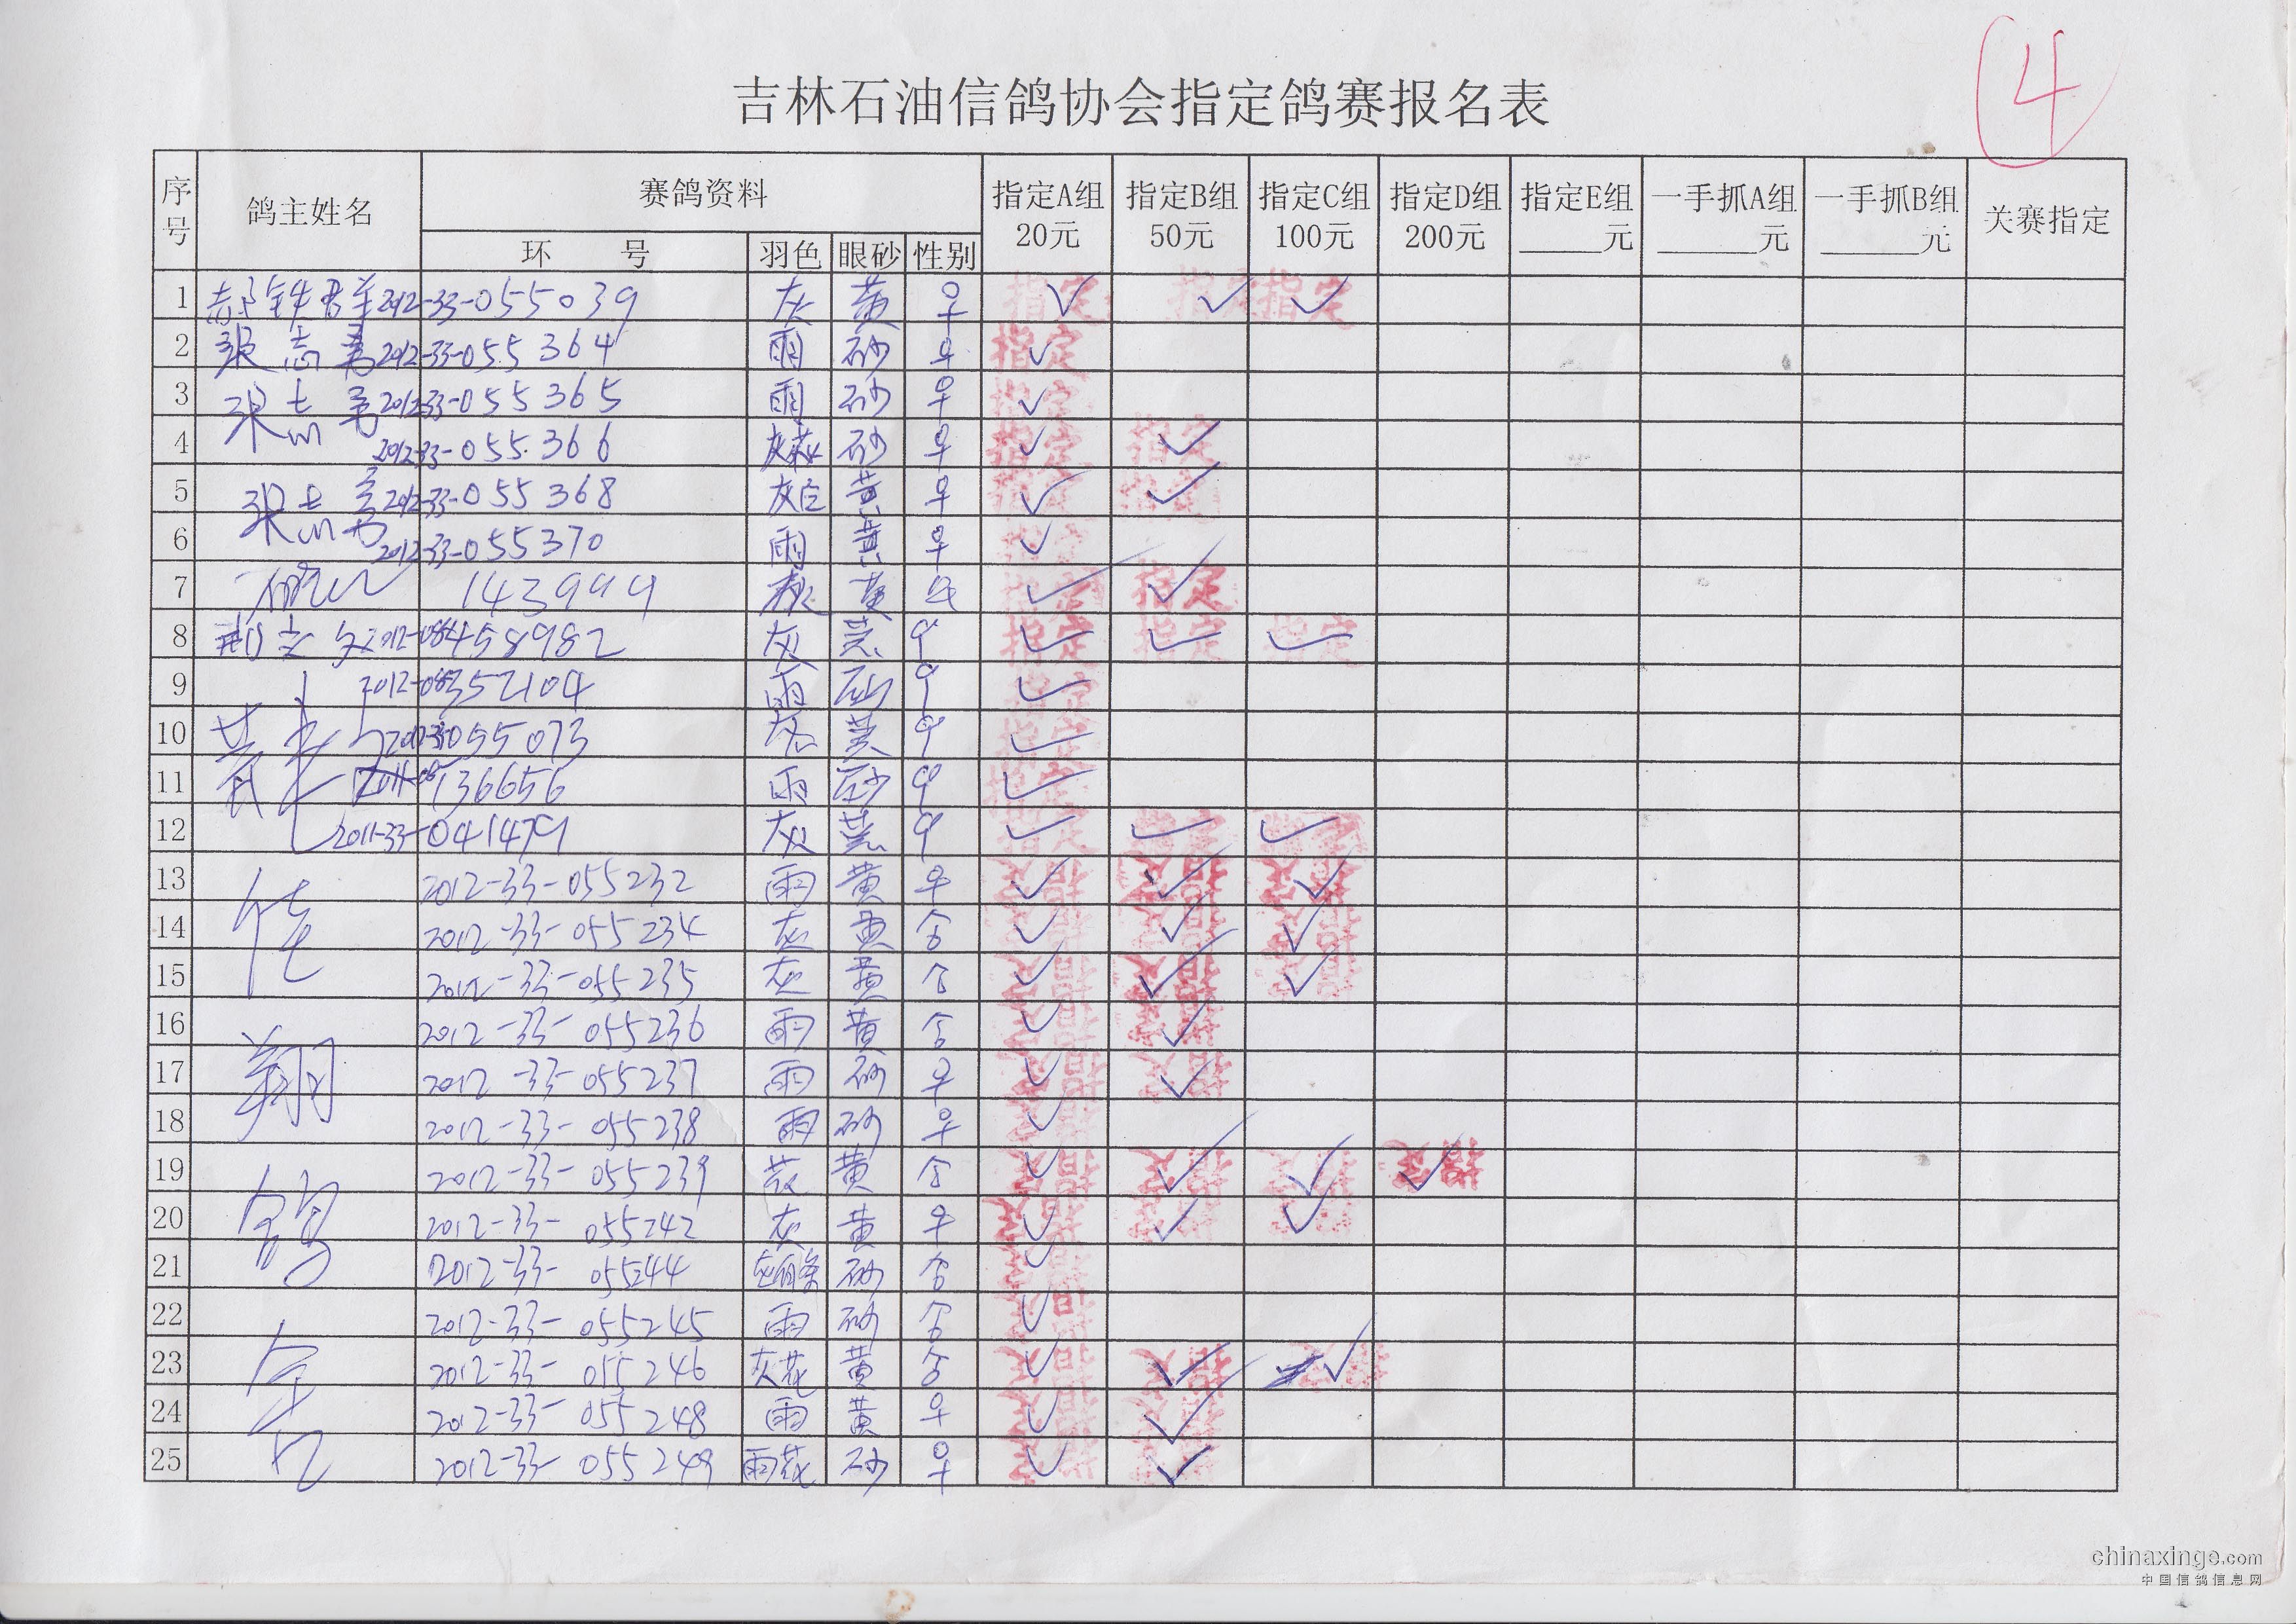 4
吉林石油信鸽协会指定鸽赛报名表
序号 鸽主姓名 赛鸽资料 指定A组 20元 指定B组 50元 指定C组 100元 指定D组 200元 指定E组 ____元 一手抓A组 ____元 一手抓B组 ____元 关赛指定
环 号 羽色 眼砂 性别
1 2012-33-055039 灰 黄 ♀ 指定 ✓ 指定 ✓ 指定 ✓
2 张志勇 2012-33-055364 雨 砂 ♀ 指定 ✓
3 张志勇 2012-33-055365 雨 砂 ♀ 指定 ✓
4 2012-33-055366 灰花 砂 ♀ 指定 ✓ 指定 ✓
5 张志勇 2012-33-055368 灰白 黄 ♀ 指定 ✓ 指定 ✓
6 2012-33-055370 雨 黄 ♀ 指定 ✓
7 143999 黄 指定 ✓ 指定 ✓
8 2012-458982 灰 黄 指定 ✓ 指定 ✓ 指定 ✓
9 2012-352104 雨 砂 指定 ✓
10 055073 黄 指定 ✓
11 136656 雨 砂 指定 ✓
12 2011-33-041479 灰 黄 指定 ✓ 指定 ✓ 指定 ✓
13 佳 2012-33-055232 雨 黄 ♀ 指定 ✓ 指定 ✓ 指定 ✓
14 2012-33-055234 灰 黄 指定 ✓ 指定 ✓ 指定 ✓
15 2012-33-055235 灰 黄 指定 ✓ 指定 ✓ 指定 ✓
16 翔 2012-33-055236 雨 黄 指定 ✓ 指定 ✓
17 2012-33-055237 雨 砂 ♀ 指定 ✓ 指定 ✓
18 2012-33-055238 雨 砂 ♀ 指定 ✓
19 鸽 2012-33-055239 花 黄 指定 ✓ 指定 ✓ 指定 ✓ 指定 ✓
20 2012-33-055242 灰 黄 ♀ 指定 ✓ 指定 ✓ 指定 ✓
21 2012-33-055244 砂 指定 ✓
22 2012-33-055245 雨 砂 指定 ✓
23 2012-33-055246 灰花 黄 指定 ✓ 指定 ✓ 指定 ✓
24 2012-33-055248 雨 黄 ♀ 指定 ✓ 指定 ✓
25 2012-33-055249 雨花 砂 ♀ 指定 ✓ 指定 ✓
chinaxinge.com
中国信鸽信息网